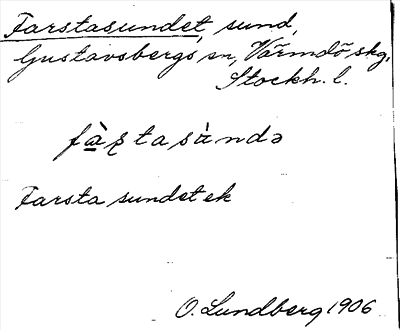 Farstasundet, sund,
Gustavsbergs sn, Värmdö skg,
Stockh. l.
Farsta sundet ek
O. Lundberg 1906